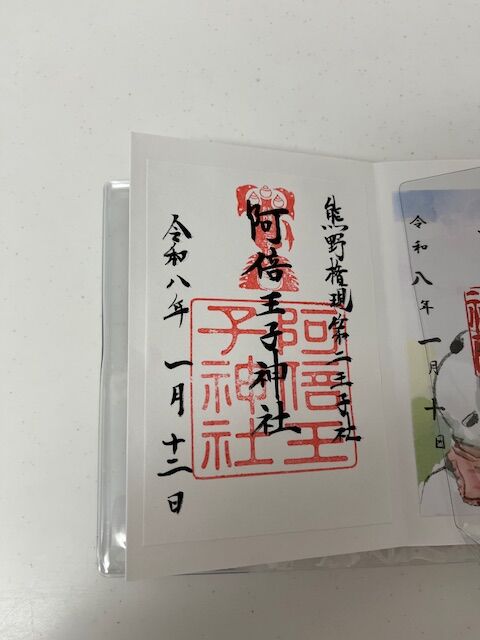 熊野権現第二王子社
阿倍王子神社
令和八年 一月十二日
阿倍王
子神社
令和八年一月十日